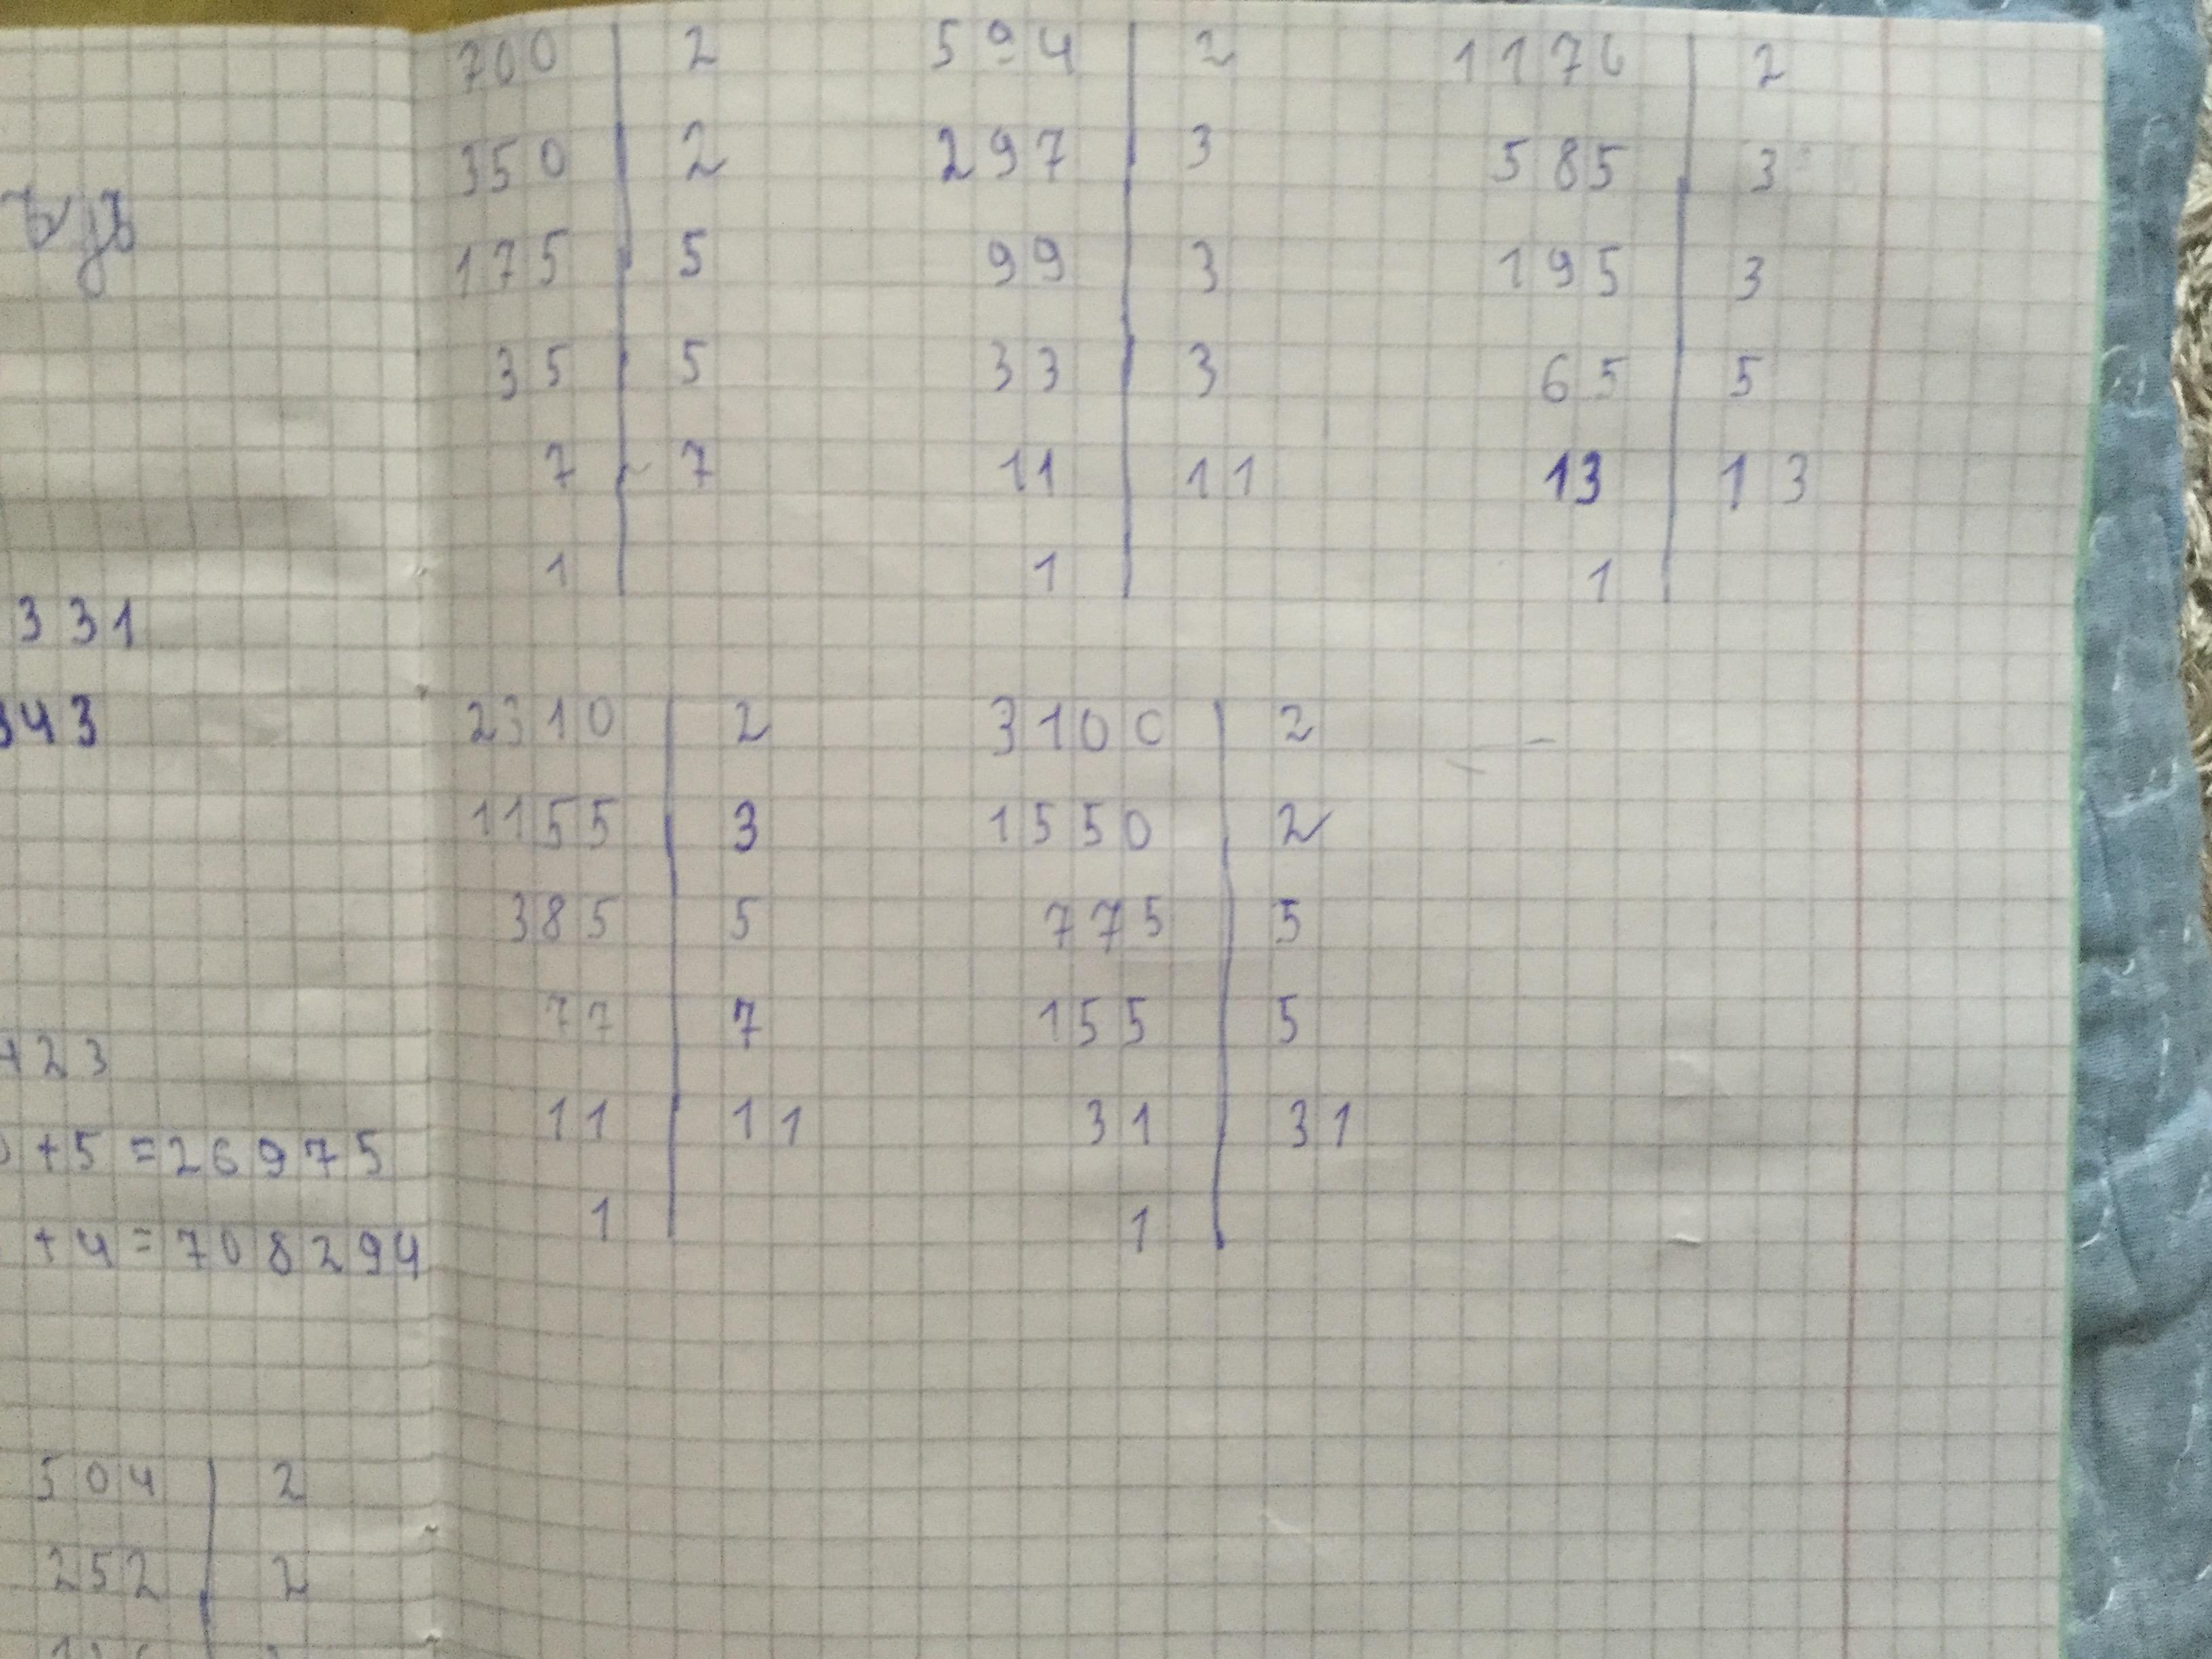 700 | 2
350 | 2
175 | 5
35 | 5
7 | 7
1
594 | 2
297 | 3
99 | 3
33 | 3
11 | 11
1
1176 | 2
585 | 3
195 | 3
65 | 5
13 | 13
1
2310 | 2
1155 | 3
385 | 5
77 | 7
11 | 11
1
3100 | 2
1550 | 2
775 | 5
155 | 5
31 | 31
1
331
343
423
+5=26975
+4=708294
504 | 2
252 | 2